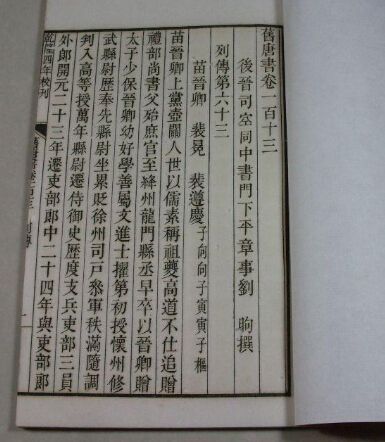 舊唐書卷一百十三
後晉司空同中書門下平章事劉　昫撰
列傳第六十三
苗晉卿　裴冕　裴遵慶 子向 向子寅 寅子樞
苗晉卿上黨壺關人世以儒素稱祖夔高道不仕追贈
禮部尚書父殆庶官至絳州龍門縣丞早卒以晉卿贈
太子少保晉卿幼好學善屬文進士擢第初授懷州修
武縣尉歷奉先縣尉坐累貶徐州司戶參軍秩滿隨調
判入高等授萬年縣尉遷侍御史歷度支兵吏部三員
外郎開元二十三年遷吏部郎中二十四年與吏部郎
乾隆四年校刊
列傳
一